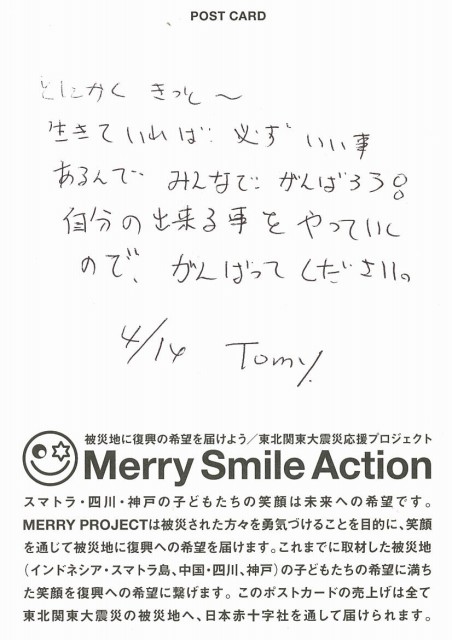 POST CARD
とにかく きっと〜
生きていれば 必ず いい事
あるんで みんなで がんばろう!
自分の出来る事を やっていく
ので、がんばって ください。
4/14 Tomy.
被災地に復興の希望を届けよう/東北関東大震災応援プロジェクト
Merry Smile Action
スマトラ・四川・神戸の子どもたちの笑顔は未来への希望です。
MERRY PROJECTは被災された方々を勇気づけることを目的に、笑顔
を通じて被災地に復興への希望を届けます。これまでに取材した被災地
(インドネシア・スマトラ島、中国・四川、神戸)の子どもたちの希望に満ち
た笑顔を復興への希望に繋げます。このポストカードの売上げは全て
東北関東大震災の被災地へ、日本赤十字社を通して届けられます。